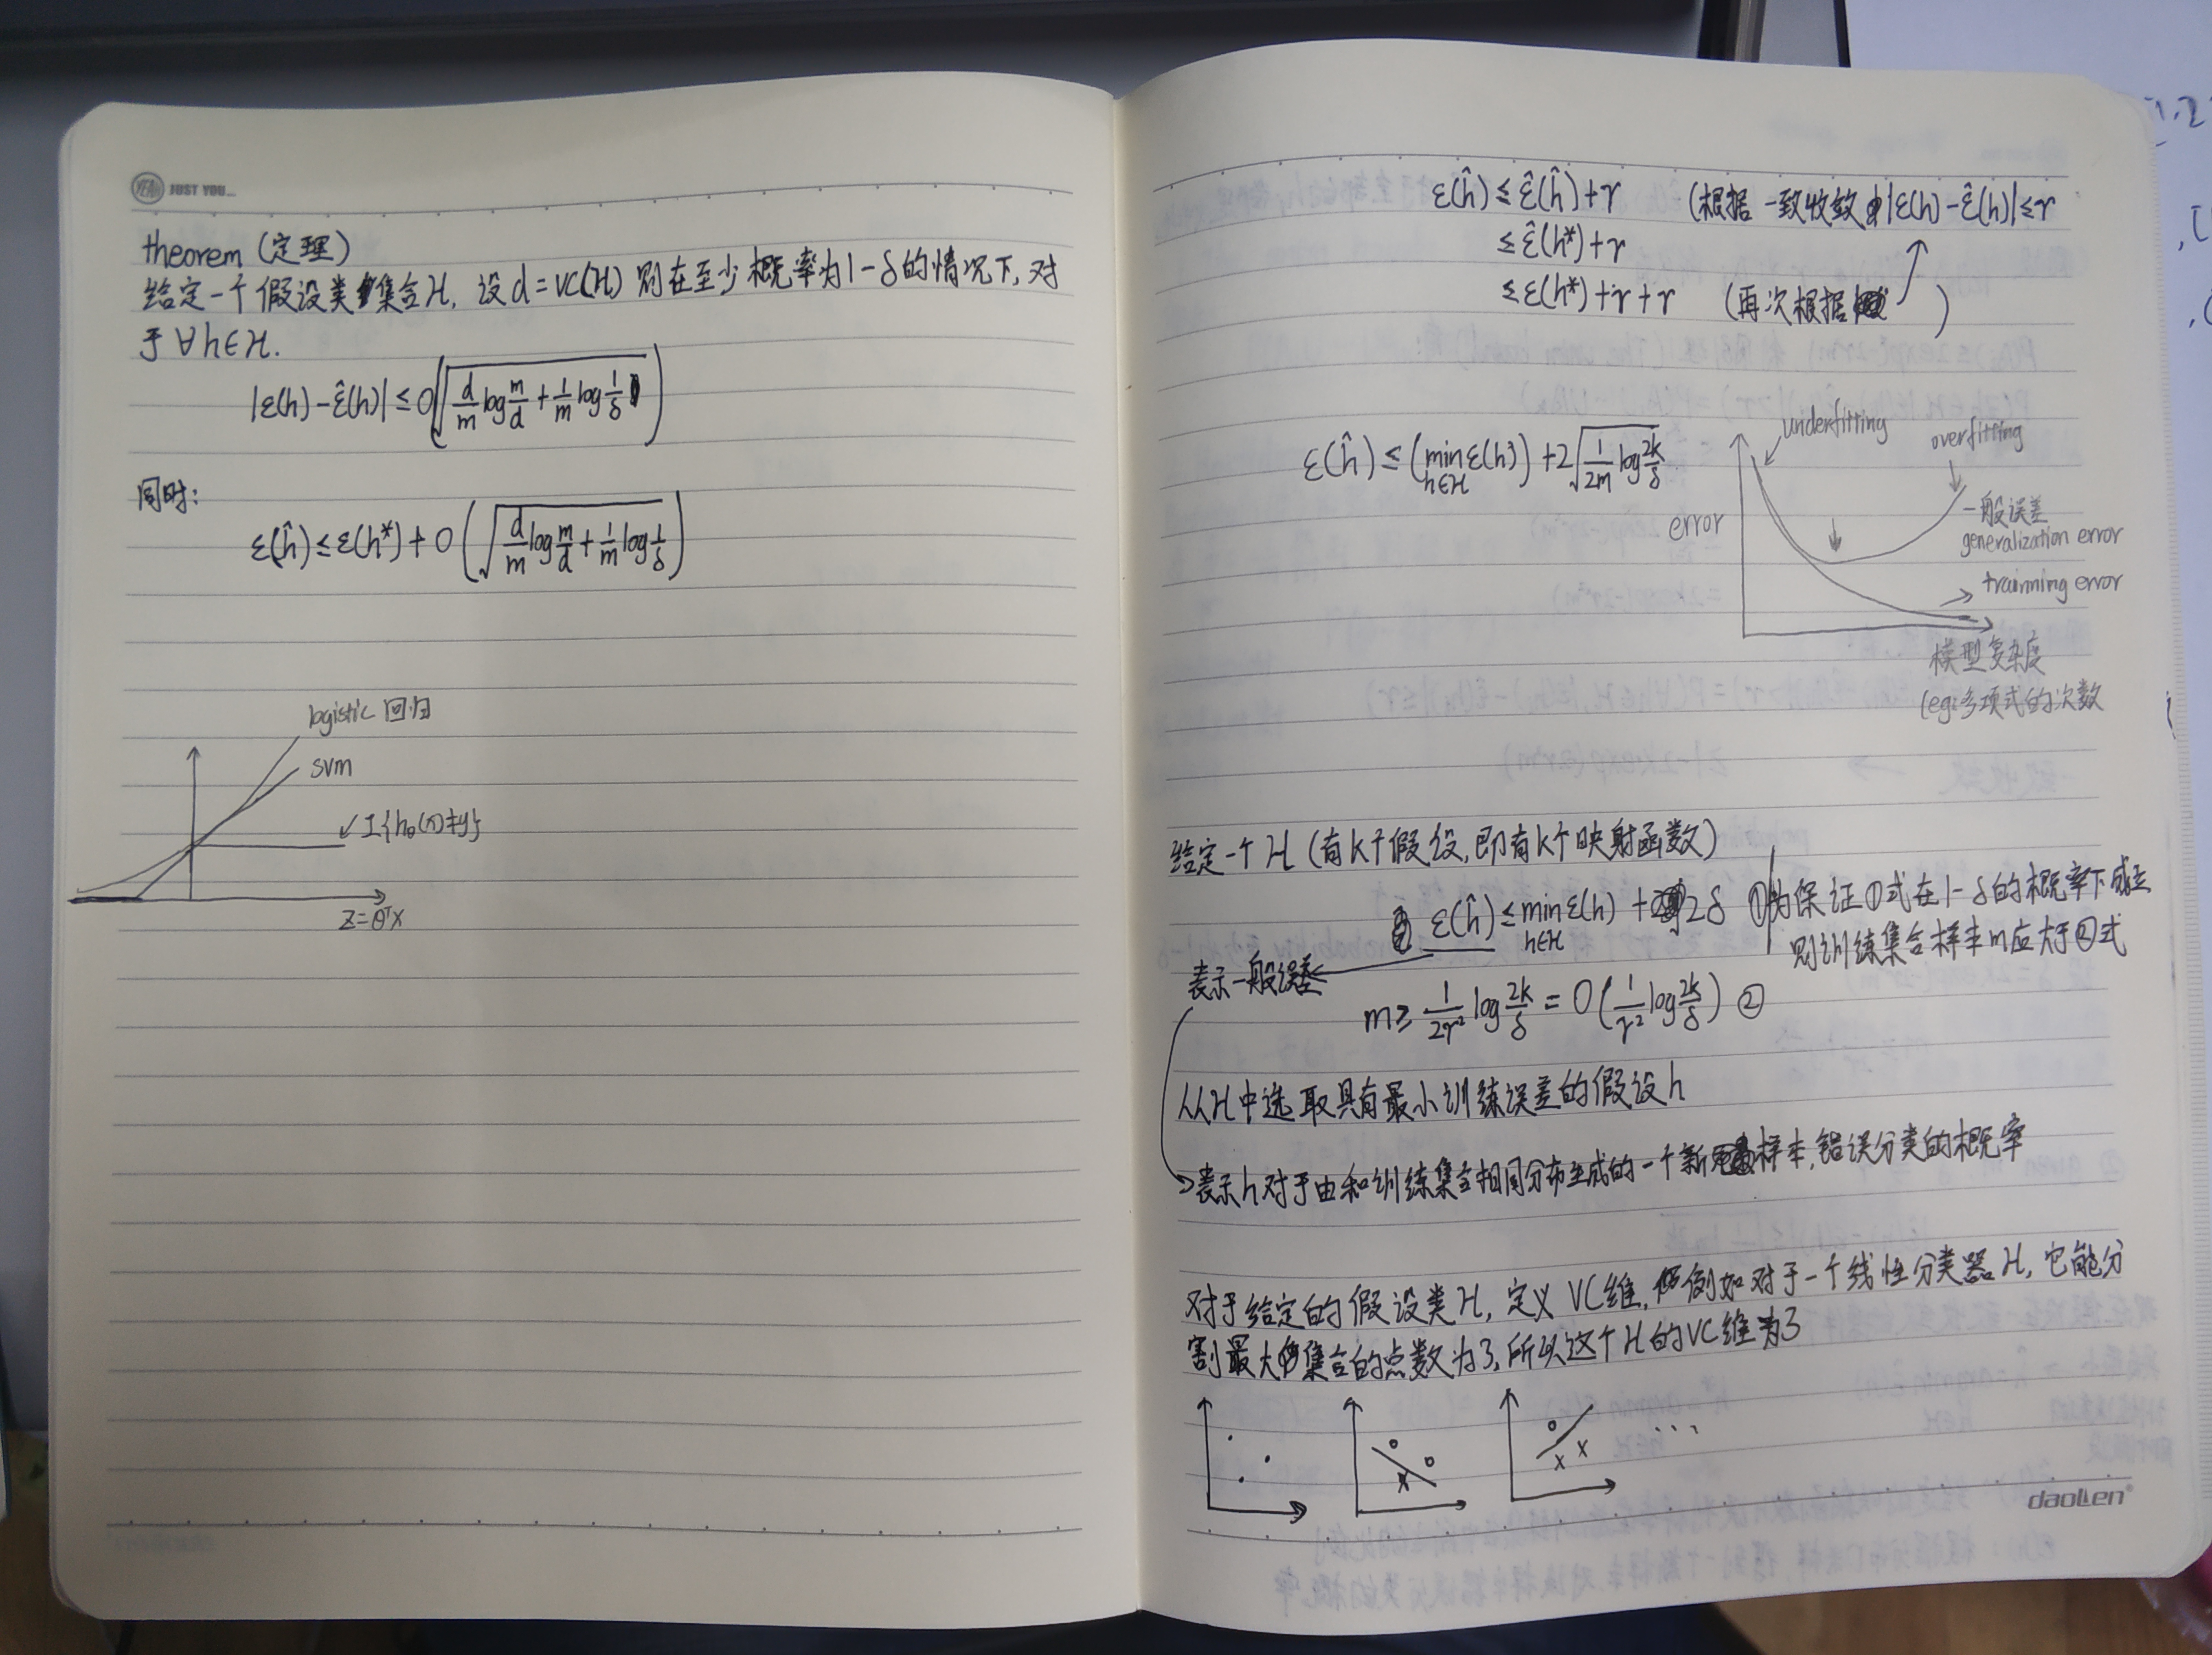 YEAH JUST YOU...
theorem (定理)
给定一个假设类集合H, 设d=VC(H) 则在至少概率为1-δ的情况下, 对
于∀h∈H.
|ε(h)-ε̂(h)| ≤ O(√(d/m log m/d + 1/m log 1/δ))
同时:
ε(ĥ) ≤ ε(h*) + O(√(d/m log m/d + 1/m log 1/δ))
logistic 回归
svm
I{hθ(x)≠y}
Z=θᵀX
ε(ĥ) ≤ ε̂(ĥ)+γ (根据一致收敛 |ε(h)-ε̂(h)|≤γ
≤ ε̂(h*)+γ
≤ ε(h*)+γ+γ (再次根据 )
ε(ĥ) ≤ (min h∈H ε(h)) + 2√(1/2m log 2k/δ)
underfitting
overfitting
error
一般误差
generalization error
trainning error
模型复杂度
(eg:多项式的次数
给定一个H (有k个假设,即有k个映射函数)
ε(ĥ) ≤ min h∈H ε(h) + 2δ ①
为保证①式在1-δ的概率下成立
则训练集合样本m应大于②式
表示一般误差
m ≥ 1/2γ² log 2k/δ = O(1/γ² log 2k/δ) ②
从H中选取具有最小训练误差的假设h
→表示h对于由和训练集合相同分布生成的一个新样本,错误分类的概率
对于给定的假设类H, 定义VC维, 例如对于一个线性分类器H, 它能分
割最大集合的点数为3,所以这个H的VC维为3
...
daolen®